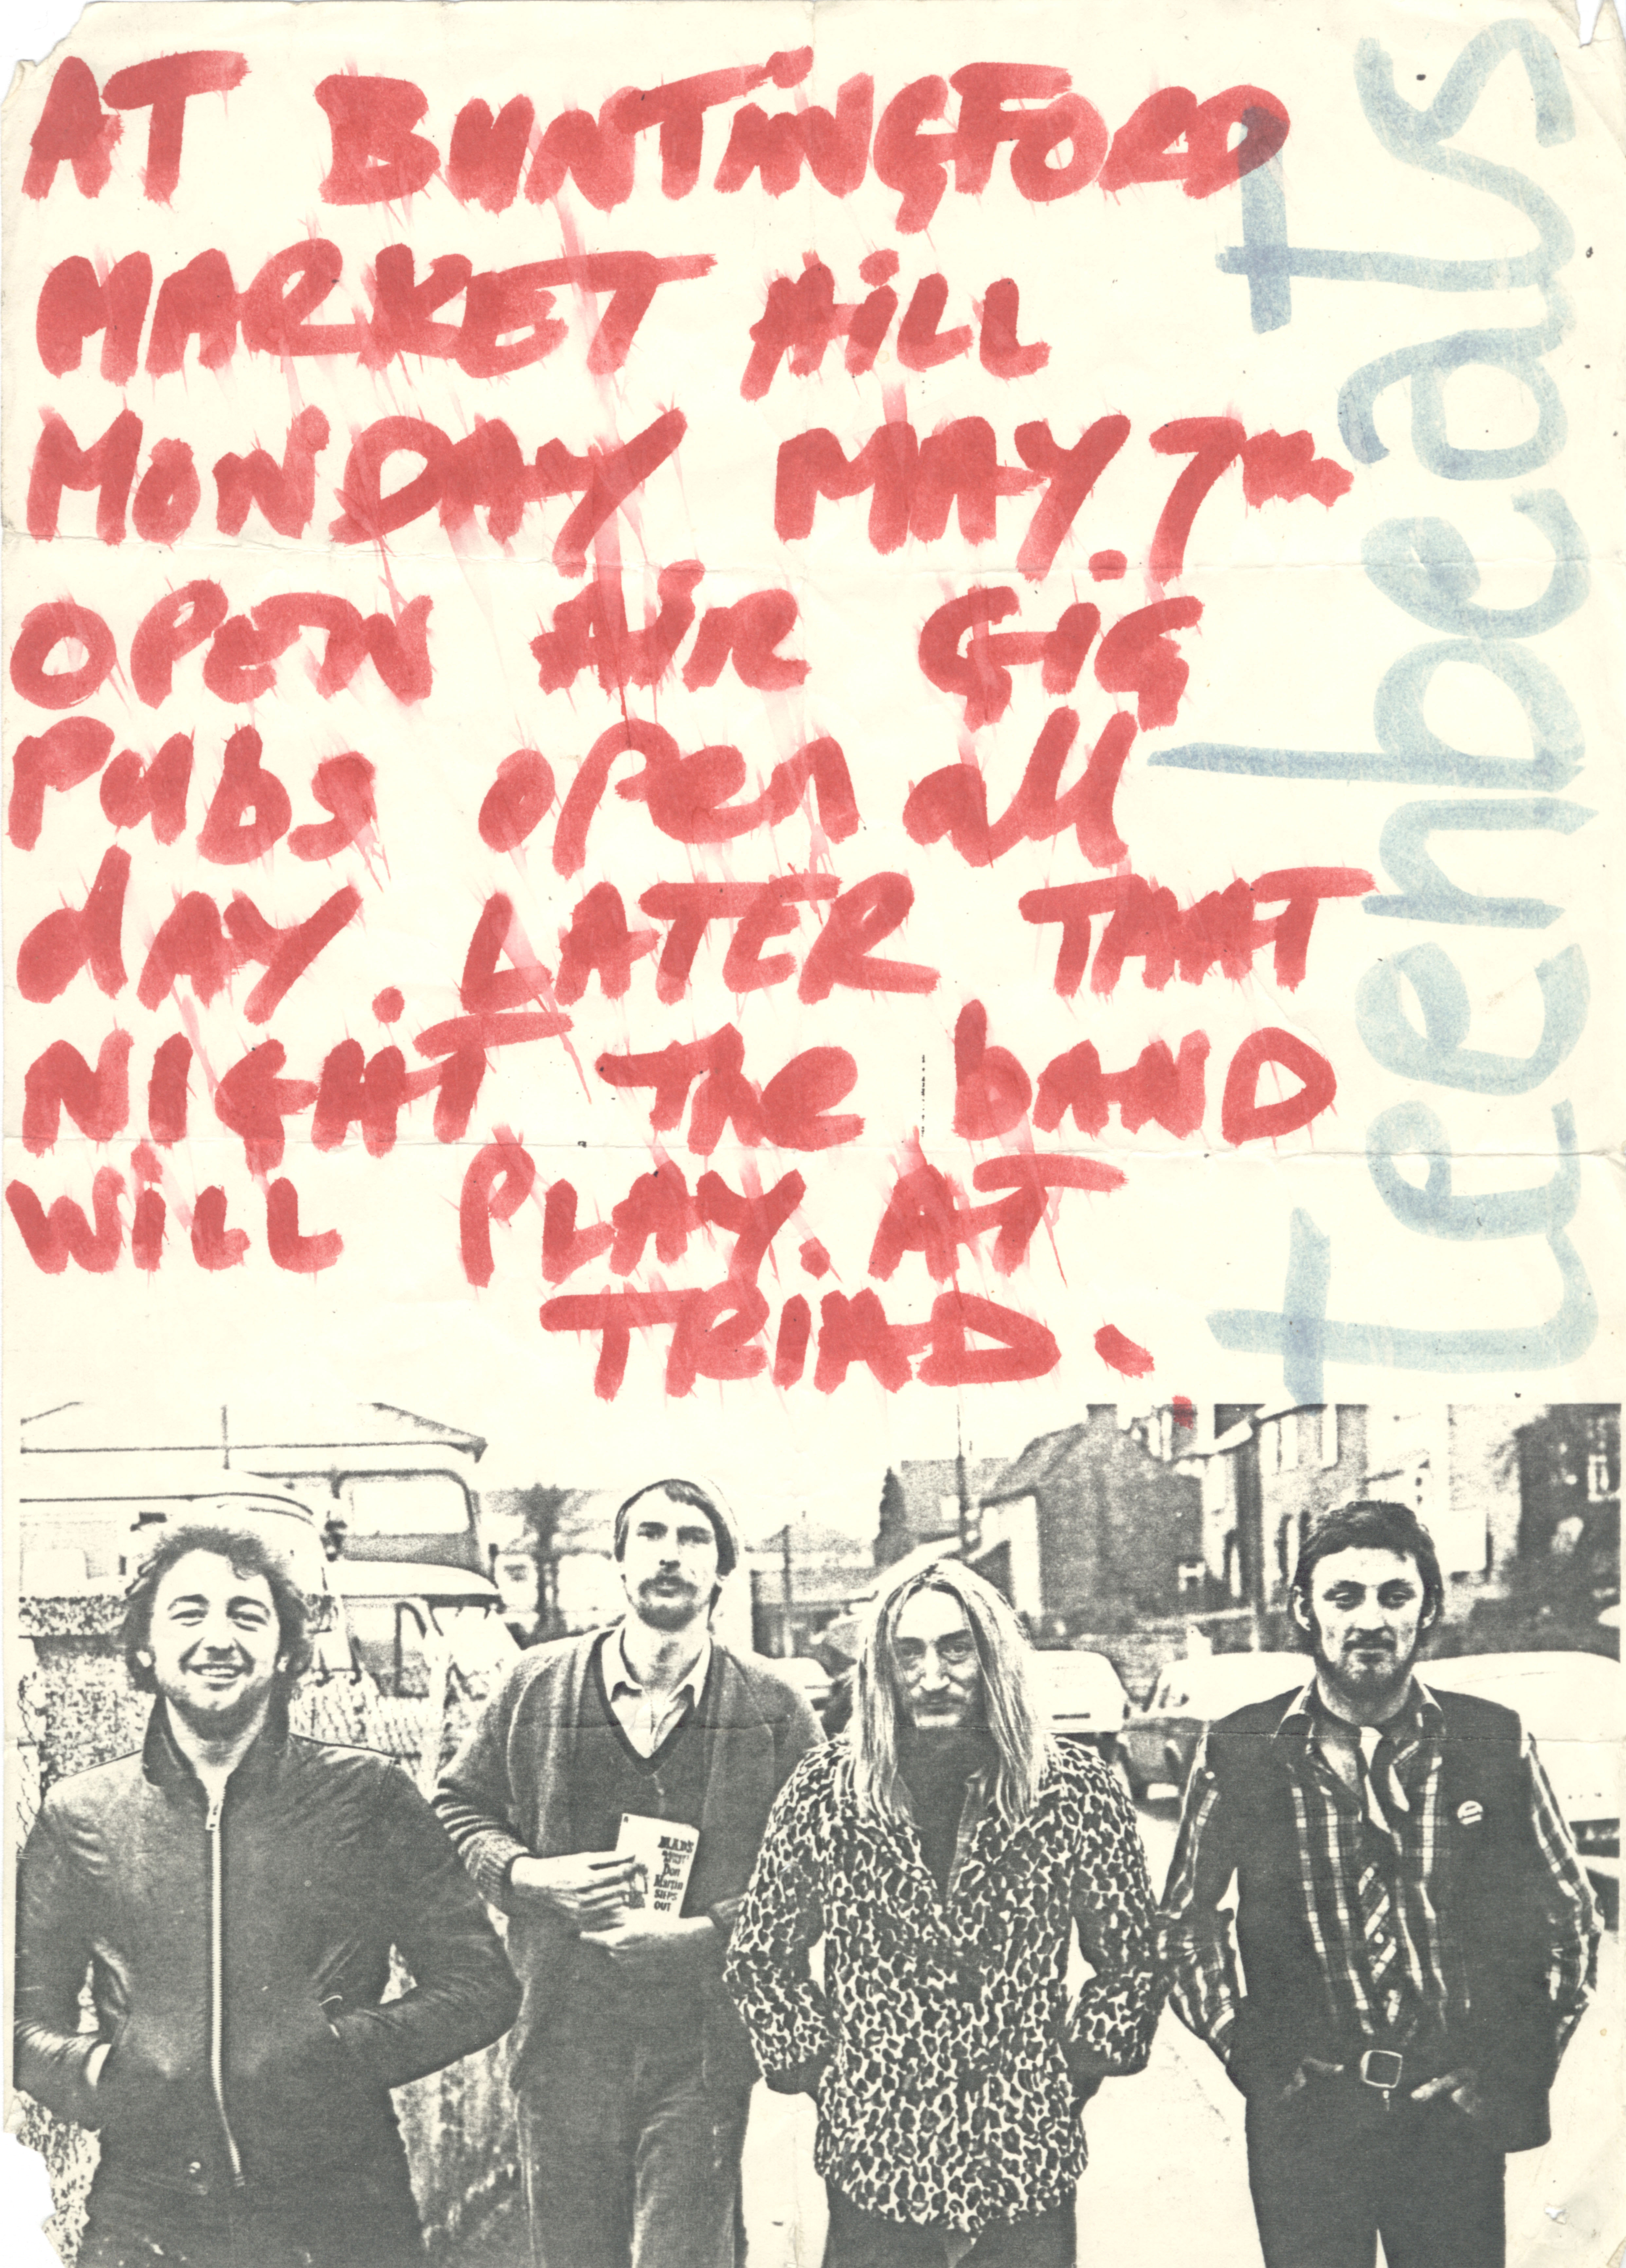 AT BUNTiNGFORD
MARKET HiLL
MONDAY MAY.7TH
OPEN AiR GIG
Pubs open all
dAY. LATER THAT
NIGHT The bAND
WiLL PLAY. AT
TRIAD.
teenbeats
MAD'S
Don
Martin
STEPS
OUT